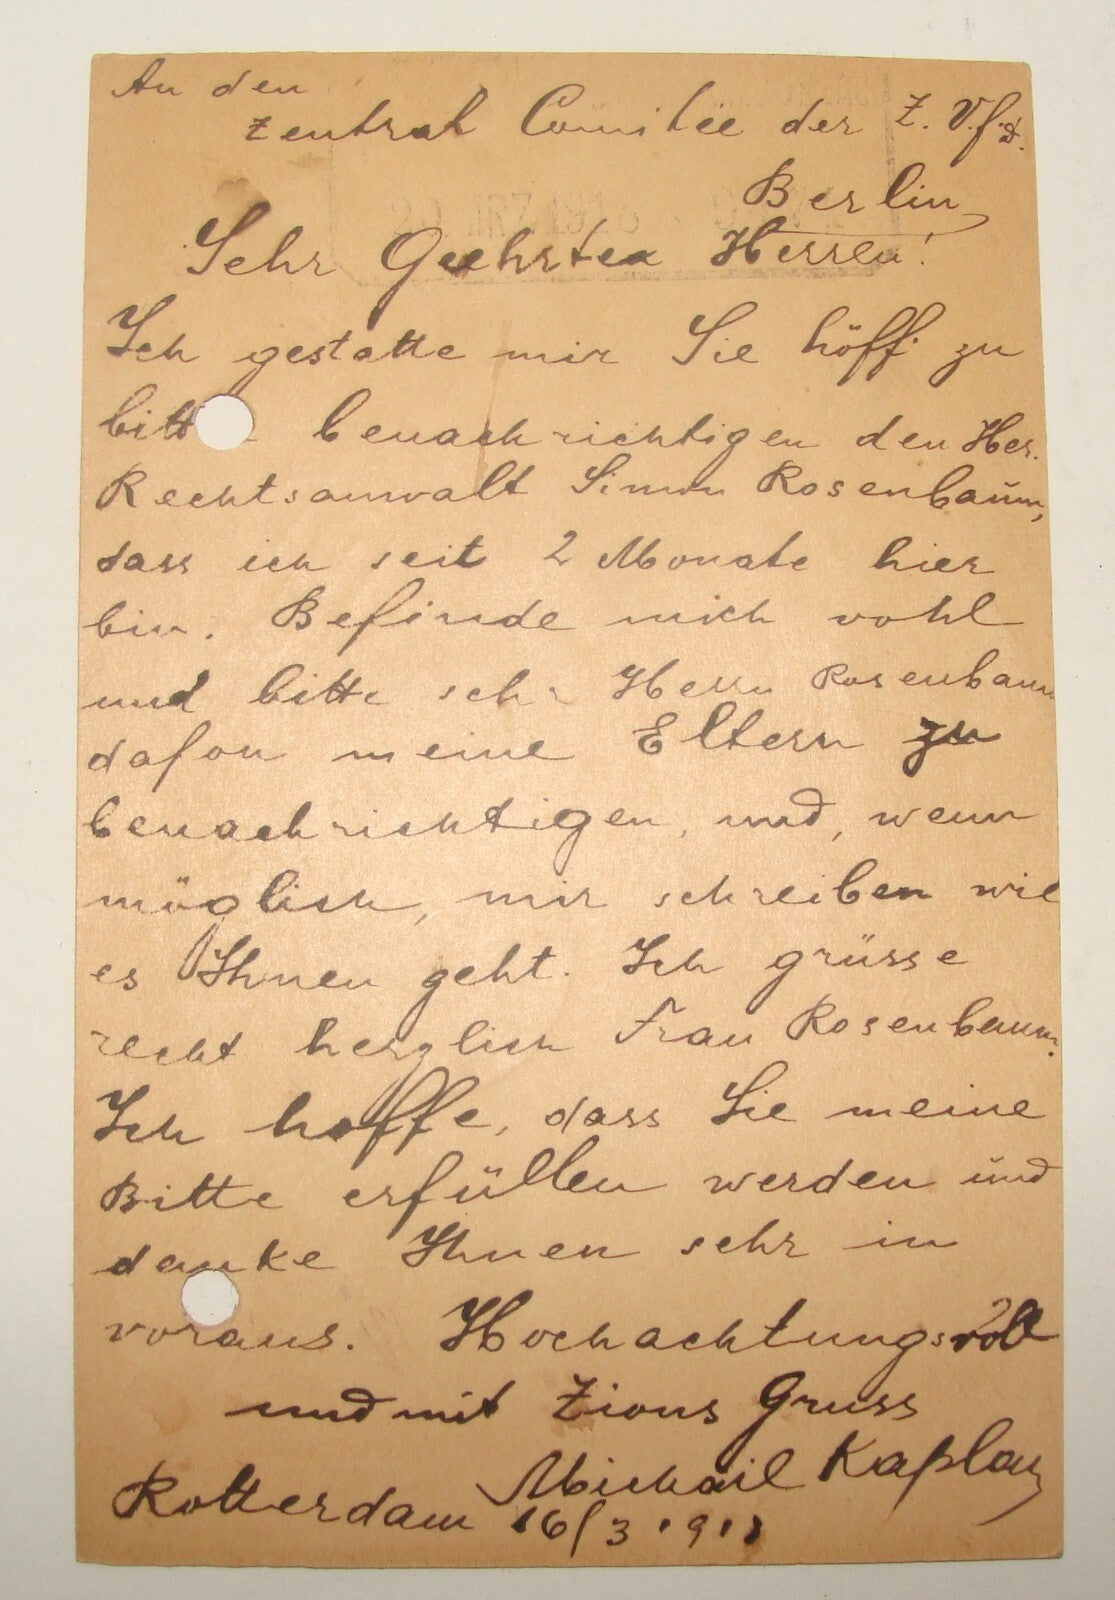 An den
Zentral Comitëe der Z. V.f.D.
Berlin
Sehr Geehrten Herren!
Ich gestatte mir Sie höff. zu
bitt benachrichtigen den Her.
Rechtsanwalt Simon Rosenbaum,
dass ich seit 2 Monate hier
bin. Befinde mich vohl
und bitte sehr Herrn Rosenbaum
dafon meine Eltern zu
benachrichtigen, und, wenn
möglich, mir schreiben wie
es Ihnen geht. Ich grüsse
recht herzlich Frau Rosenbaum.
Ich hoffe, dass Sie meine
Bitte erfüllen werden und
danke Ihnen sehr in
voraus. Hochachtungsvoll
und mit Zions Gruss
Michail Kaplan
Rotterdam 16/3